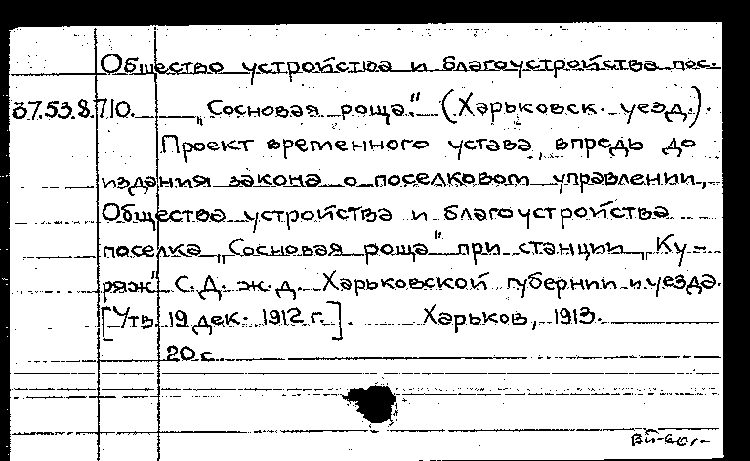 Общество устройства и благоустройства пос.
37.53.8.710. „Сосновая роща." (Харьковск. уезд.).
Проект временного устава, впредь до
издания закона о поселковом управлении,
Общества устройства и благоустройства
поселка „Сосновая роща" при станции „Ку-
ряж" С.Д. ж.д. Харьковской губернии и уезда.
[Утв. 19 дек. 1912 г.]. Харьков, 1913.
20 с.